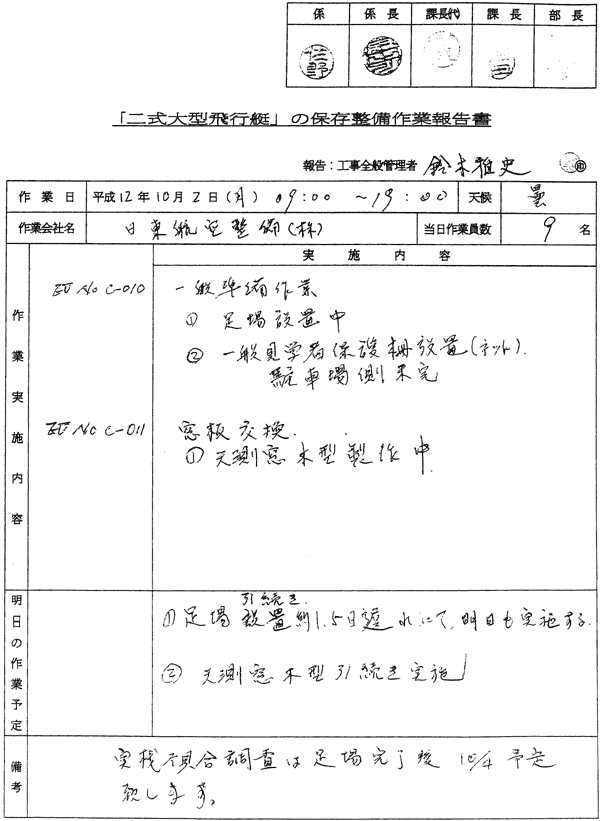 係 係長 課長代 課長 部長
「二式大型飛行艇」の保存整備作業報告書
報告：工事全般管理者 鈴木雅史
作業日 平成12年10月2日(月) 09:00 ～19:00 天候 曇
作業会社名 日東航空整備(株) 当日作業員数 9 名
実施内容
作業実施内容
EU No C-010 一般準備作業
① 足場設置中
② 一般見学者保護柵設置(ネット).
駐車場側未完
EU No C-011 窓板交換.
① 天測窓木型製作中.
明日の作業予定
引続き
①足場設置約1.5日遅れにて、明日も実施する.
② 天測窓木型引続き実施
備考
実機不具合調査は足場完了後 10/4 予定
致します。